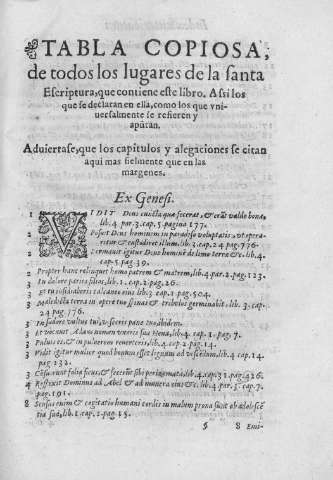 TABLA COPIOSA,
de todos los lugares de la santa
Escriptura, que contiene este libro. Assi los
que se declaran en ella, como los que vni-
uersalmente se refieren y
apũtan.
Aduiertase, que los capitulos y alegaciones se citan
aqui mas fielmente que en las
margenes.
Ex Genesi.
1 VIDIT Deus cuncta quæ fecerat, & erãt valde bona,
lib. 4 par. 3. cap. 5. pagina 177.
2 Posuit Deus hominem in paradiso voluptatis, vt opera-
retur & custodiret illum. lib. 3. cap. 24 pag. 776.
2 Formauit igitur Deus hominẽ de limo terræ &c. lib. 4.
cap. 5. pag. 39.
2 Propter hanc relinquet homo patrem & matrem, lib. 4. par. 2. pag. 123.
3 In dolore paries filios, lib. 1. cap. 2. pag. 26.
3 Et tu insidiaberis calcaneo eius lib. 3 cap. 1 pag. 504.
3 Maledicta terra in opere tuo spinas & tribulos germinabit, lib. 3. cap.
24 pag. 776.
3 In sudore vultus tui, vesceris pane tuo ibidem.
3 Et vocauit Adam nomen vxoris suæ Heua, lib. 4. cap. 1. pag. 7.
3 Puluis es, & in puluerem reuerteris, lib. 4. cap. 2 pag. 14.
3 Vidit igitur mulier quod bonum esset lignum ad vescendum, lib. 4 cap. 14.
pag 132.
3 folia ficus, & fecerũt sibi perizomata, lib. 4. cap. 31. pag. 426.
4 Respexit Dominus ad Abel & ad munera eius &c. lib. 4. par. 3. cap. 7.
pag. 191.
8 Sensus enim & cogitatio humani cordis in malum prona sunt ab adolescẽ
tia sua, lib. 1. cap. 2. pag. 15.
8 Emi-